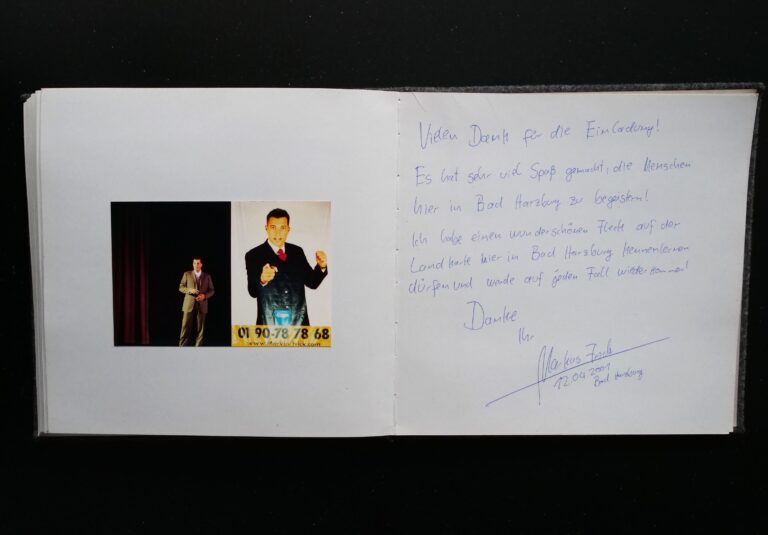 01 90-78 78 68
www.markusfrick.com
Vielen Dank für die Einladung!
Es hat sehr viel Spaß gemacht, die Menschen
hier in Bad Harzburg zu begeistern!
Ich habe einen wunderschönen Fleck auf der
Landkarte hier in Bad Harzburg kennenlernen
dürfen und werde auf jeden Fall wiederkommen!
Danke
Ihr
Markus Frick
12.04.2001
Bad Harzburg